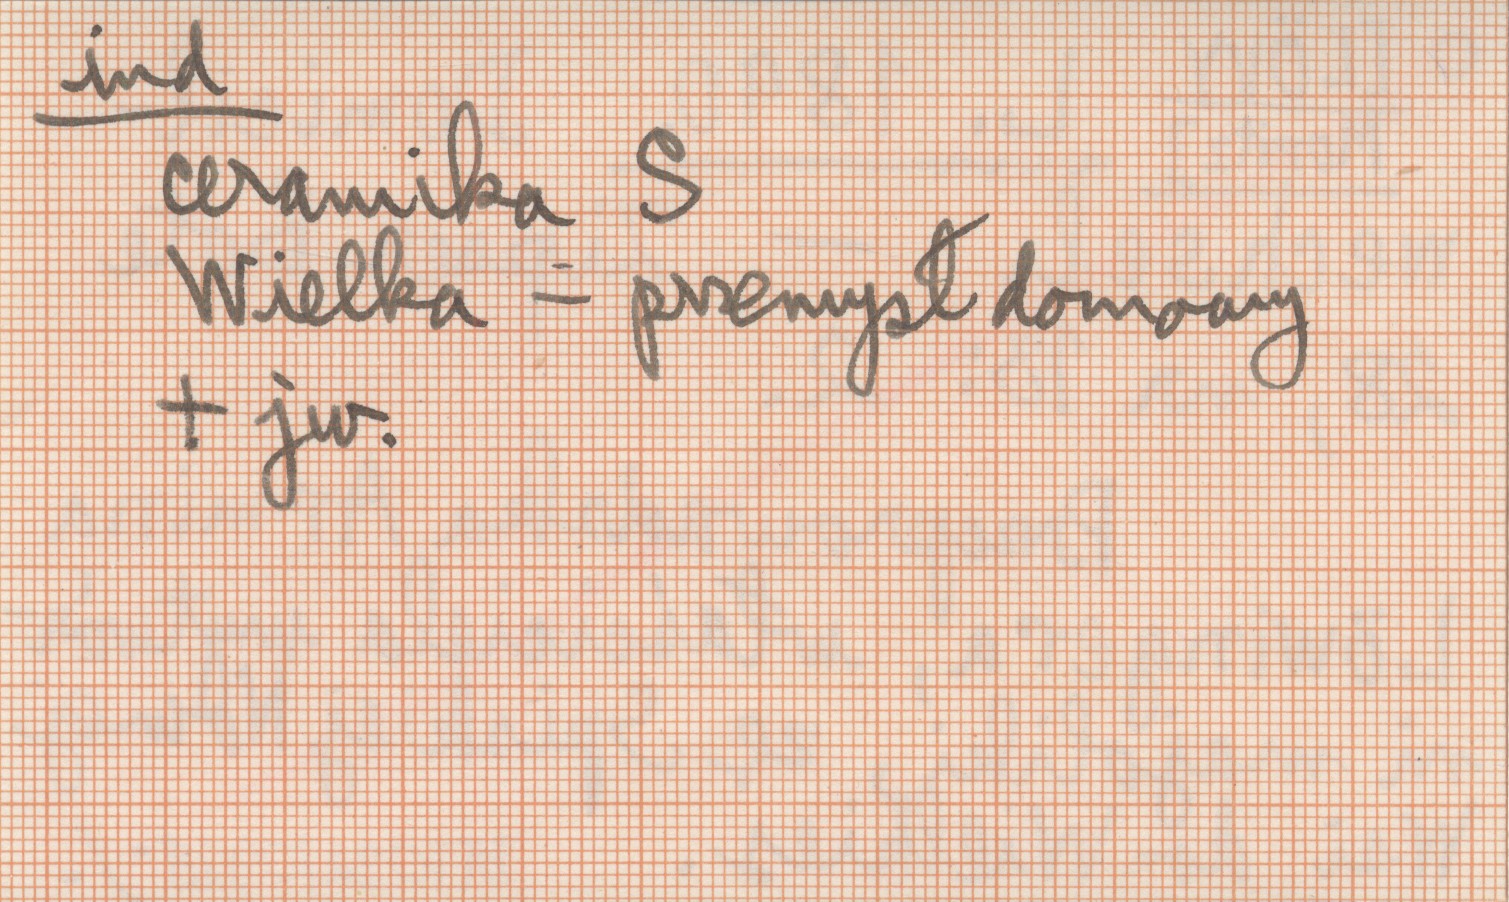 ind
ceramika S
Wielka = przemysł domowy
+ jw.